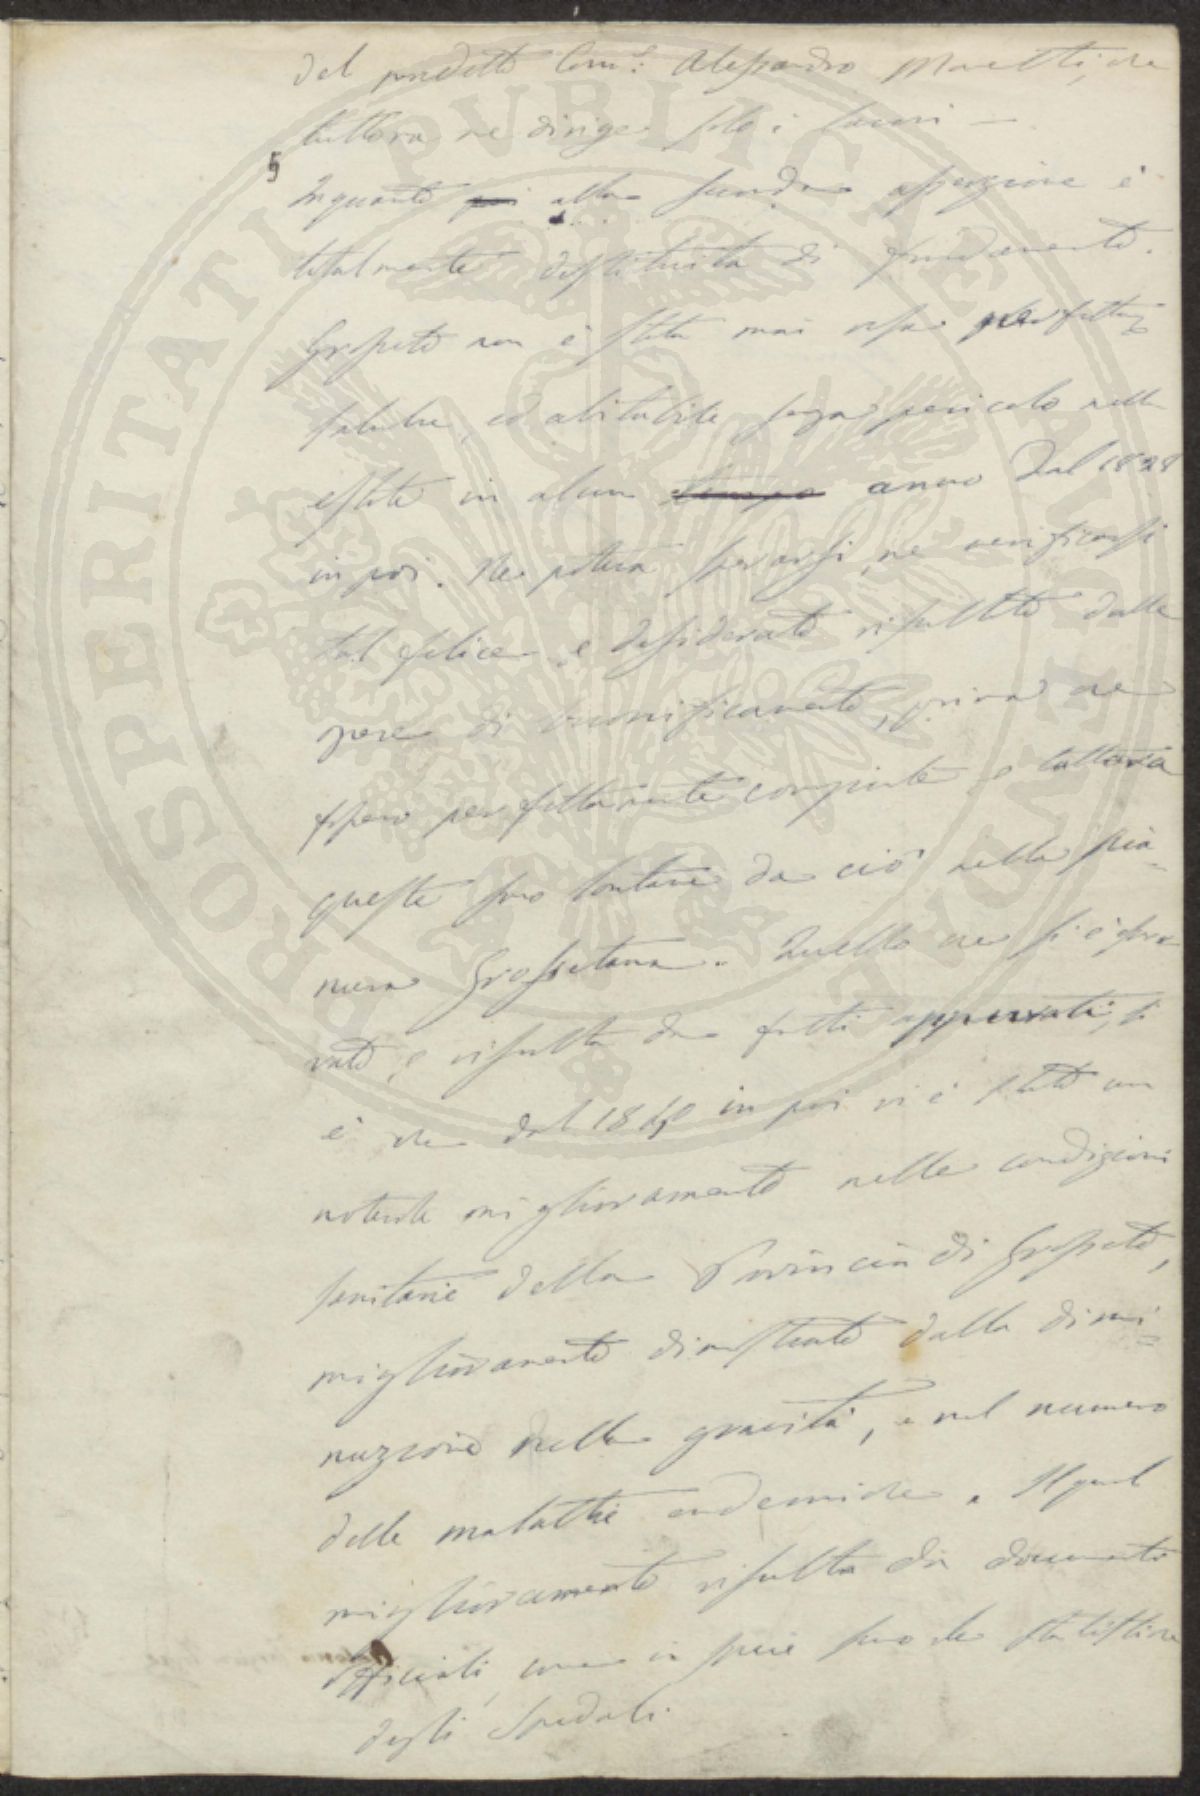 del predetto Com.e Alessandro Manetti, che
tuttora ne dirige solo i lavori —
5
Inquanto poi alla seconda asserzione è
totalmente destituita di fondamento.
Grosseto non è stata mai resa perfettam.
salubre, ed abitabile senza pericolo nella
estate in alcun tempo anno Dal 1828
in poi. Ne poteva sperarsi, ne verificarsi
tal felice, e desiderato risultato dalle
opere di buonificamento, prima che
fossero perfettamente compiute e tuttavia
queste sono lontane da ciò nella pia=
nura Grossetana. Quello che si è osser
vato, e risulta da fatti apprezzati, si
è che dal 1840 in poi vi è stato un
notevole miglioramento nelle condizioni
sanitarie della Provincia di Grosseto,
miglioramento dimostrato dalla dimi=
nuzione nella gravità, e nel numero
delle malattie endemiche. Il qual
miglioramento risulta da documenti
officiali, come in specie sono le statistiche
degli Spedali.
PROSPERITATI PVBLICAE AVGENDAE